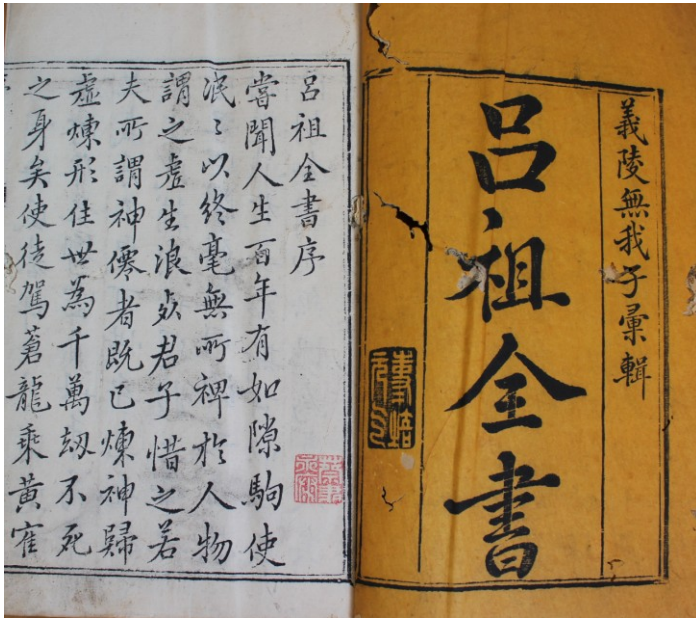 義陵無我子彙輯
呂祖全書
呂祖全書序
嘗聞人生百年有如隙駒使
泯〻以終毫無所裨於人物
謂之虛生浪死君子惜之若
夫所謂神僊者既已煉神歸
虛煉形住世為千萬劫不死
之身矣使徒駕蒼龍乘黃寉